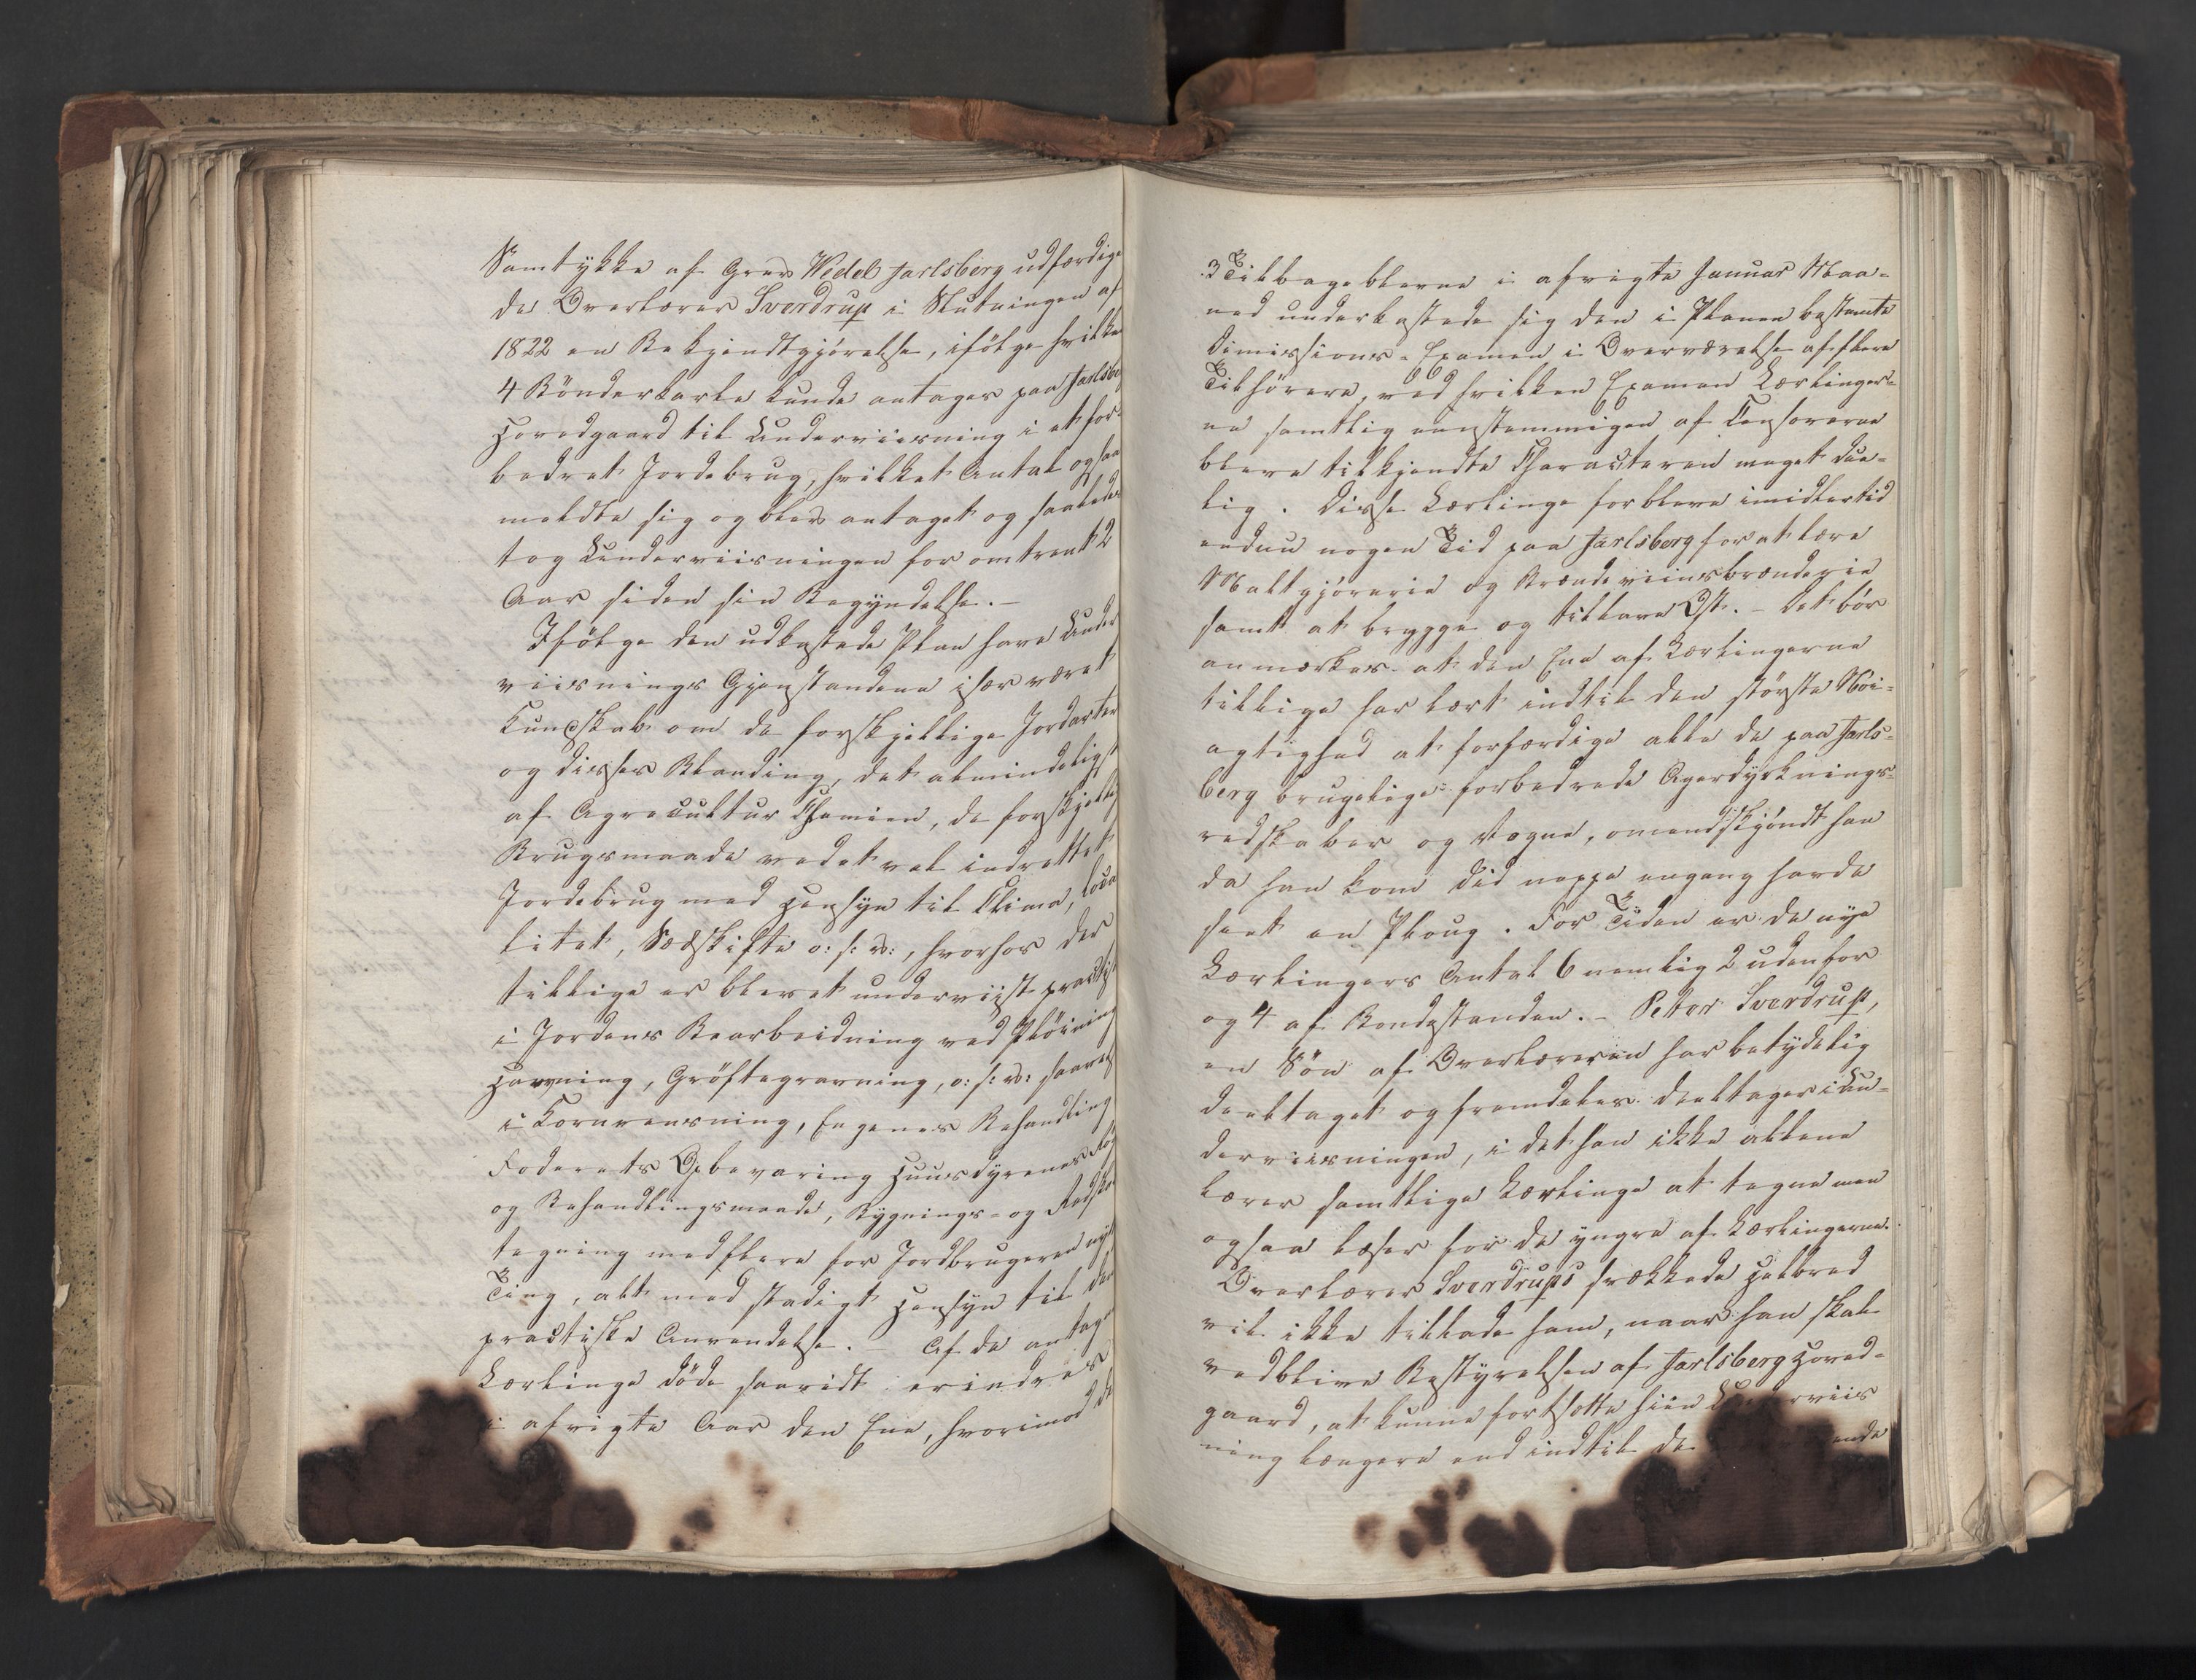 Samtykke af Grev Wedel Jarlsberg udfærdige
de Overlærer Sverdrup i Slutningen af
1822 en Bekjendtgjörelse, ifölge hvilken
4 Bönderkarle kunde antages paa Jarlsbe
Hovedgaard til Underviisning i et for
bedret Jordebrug, hvilket Antal ogsaa
meldte sig og blev antaget og saaledes
tog Underviisningen for omtrent 2
Aar siden sin Begyndelse. –
Ifölge den udkastede Plan have Under
viisnings Gjenstandene især været
Kundskab om de forskjellige Jordarter
og disses Blanding, det almindeligst
af Agrecultur Chemien, de forskjellig
Brugsmaade ved et vel indrettet
Jordebrug med Hensyn til Clima, Loca
litet, Sædskifte o: s: v:, hvorhos der
tillige er blevet underviist practisk
i Jordens Bearbeidning ved Plöining
Harvning, Gröftegravning, o: s: v: saavel
i Kornrensning, Engenes Behandling
Foderets Opbevaring Huusdyrenes
og Behandlingsmaade, Bygnings- og Redska
tegning med flere for Jordbrugeren nyt
Ting, alt med stadigt Hensyn til den
practiske Anvendelse. – Af de antag
Lærlinge döde saavidt erindres
i afvigte Aar den Ene, hvorimod de
3 Tilbageblevne i afvigte Januar Maa-
ned underkastede sig den i Planen bestemte
Dimissions-Examen i Overværelse af flere
Tilhörere, ved hvilken Examen Lærlinger-
ne samtlig eenstemmigen af Censorerne
bleve tilkjendte Characteren meget due-
lig. Disse Lærlinge forbleve imidlertid
endnu nogen Tid paa Jarlsberg for at lære
Maltgjörerie og Brændeviinsbrænderie
samt at brygge og tillave Ost. – Det bör
anmærkes at den Ene af Lærlingerne
tillige har lært indtil den störste Nöi-
agtighed at forfærdige alle de paa Jarls-
berg brugelige forbedrede Agerdyrknings-
redskaber og Vogne, omendskjöndt han
da han kom did neppe engang havde
seet en Ploug. For Tiden er de nye
Lærlingers Antal 6 nemlig 2 udenfor
og 4 af Bondestanden. – Peter Sverdrup,
en Sön af Overlæreren har betydelig
deeltaget og fremdeles deeltager i Un-
derviisningen, i det han ikke allene
lærer samtlige Lærlinge at tegne men
ogsaa læser for de yngre af Lærlingerne.
Overlærer Sverdrups svækkede Helbred
vil ikke tillade ham, naar han skal
vedblive Bestyrelsen af Jarlsberg Hoved-
gaard, at kunne fortsætte hiin Underviis
ning længere end indtil de ende